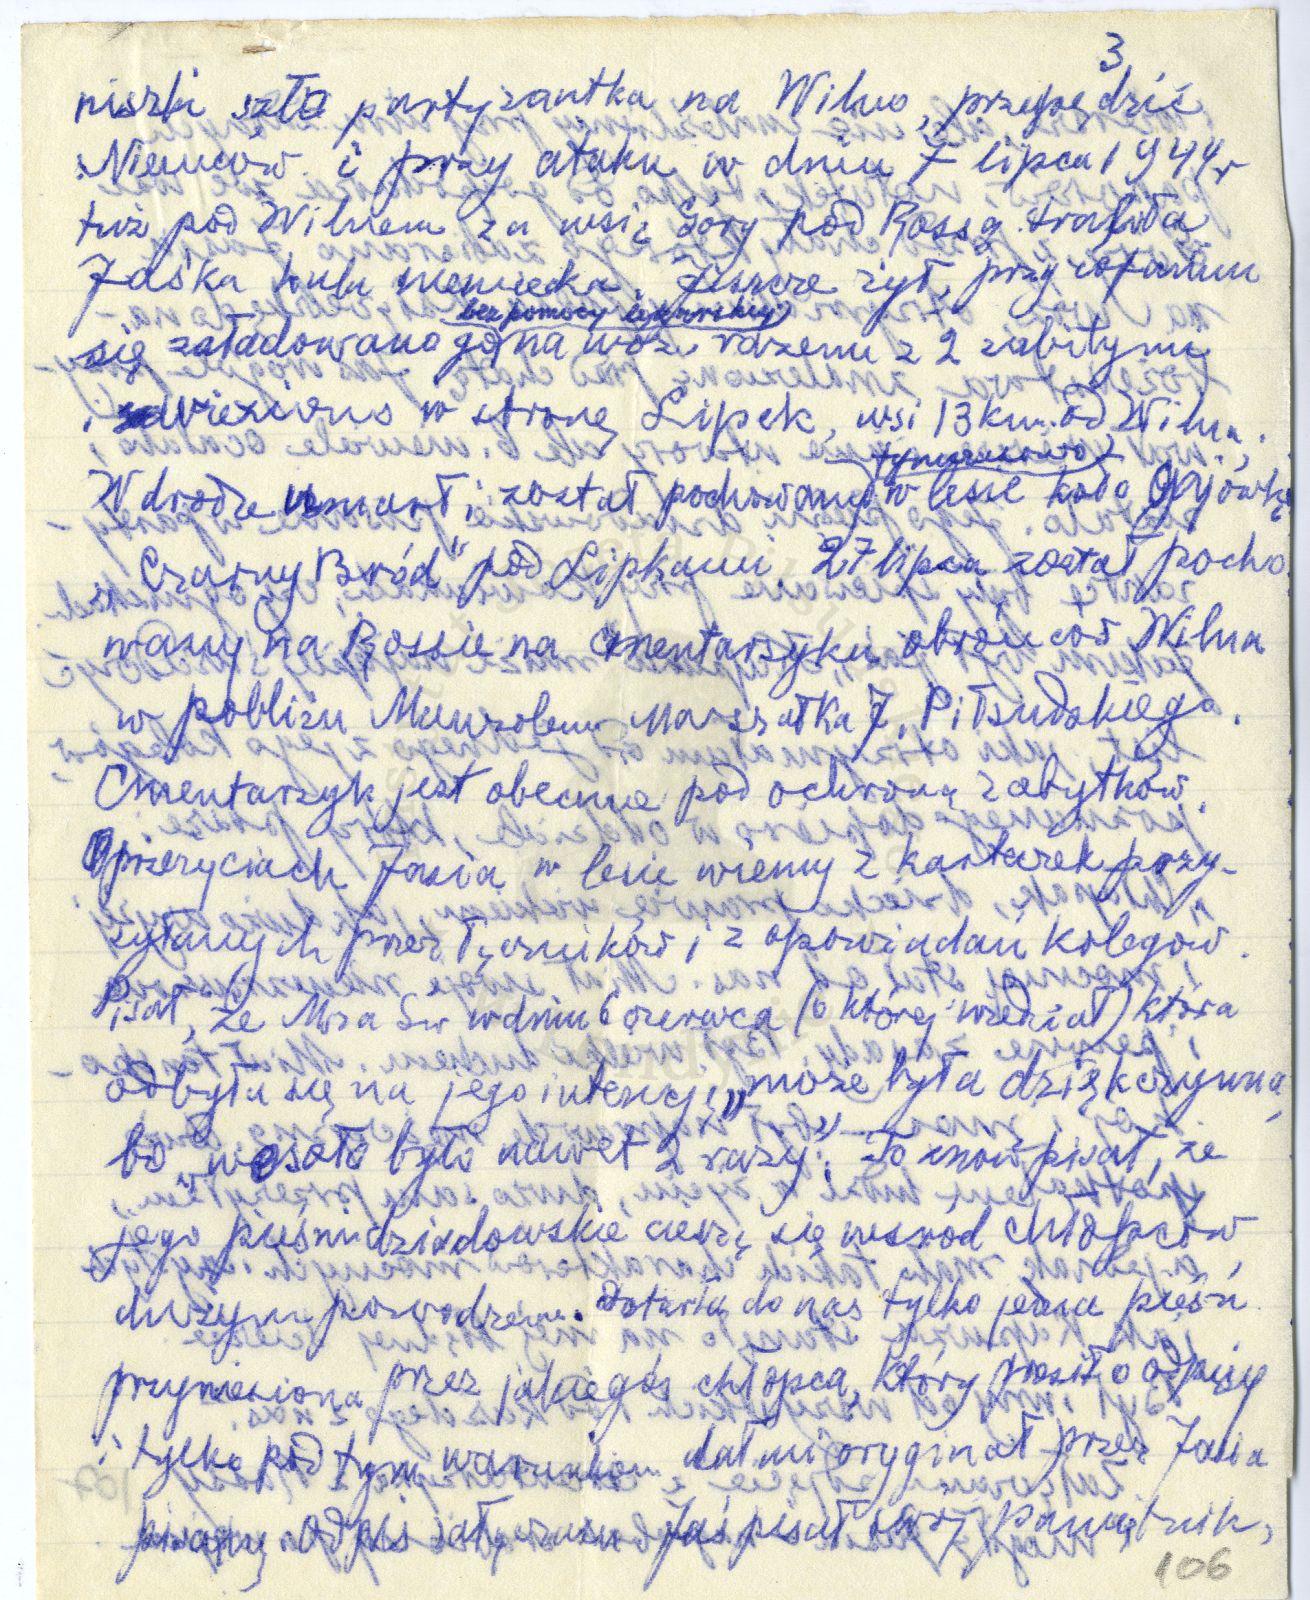 3
niszki szła partyzantka na Wilno, przepędzić
Niemców i przy ataku w dniu 7 lipca 1944 r
tuż pod Wilnem za wsią Góry pod Rossą trafiła
Jaśka kula niemiecka. Jeszcze żył, przy cofaniu
bez pomocy lekarskiej
się załadowano go na wóz razem z 2 zabitymi
i zawieziono w stronę Lipek, wsi 13 km. od Wilna.
tymczasowo
W drodze umarł i został pochowany w lesie koło gajówki
"Czarny Bród" pod Lipkami. 27 lipca został pocho
wany na Rossie na cmentarzyku obrońców Wilna
w pobliżu Mauzoleum Marszałka J. Piłsudskiego.
Cmentarzyk jest obecnie pod ochroną zabytków.
O przeżyciach Jasia w lesie wiemy z karteczek przy-
syłanych przez łączników i z opowiadań kolegów.
Pisał, że Msza Św w dniu 6 czerwca (o której wiedział) która
odbyła się na jego intencję, "może była dziękczynna,
bo wesoło było nawet 2 razy". To znów pisał, że
jego pieśni dziadowskie cieszą się wśród chłopców
dużym powodzeniem. Dotarła do nas tylko jedna pieśń
przyniesiona przez jakiegoś chłopca, który prosił o odpisy
i tylko pod tym warunkiem dał mi oryginał przez Jasia
pisany, odpis Jaś pisał swój pamiętnik,
106